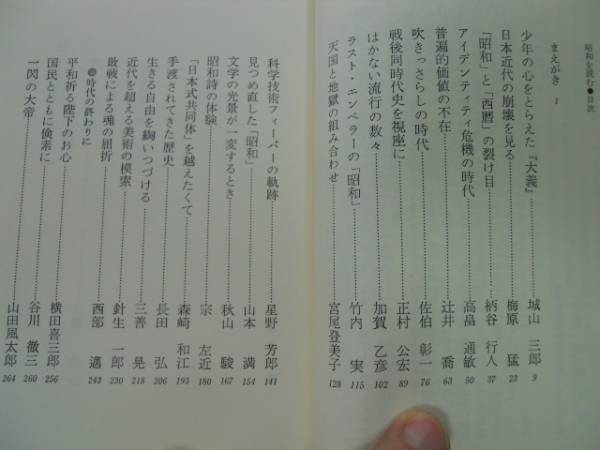 昭和を読む●目次
まえがき 1
少年の心をとらえた『大義』……城山 三郎 9
日本近代の崩壊を見る……梅原 猛 23
「昭和」と「西暦」の裂け目……柄谷 行人 37
アイデンティティ危機の時代……高畠 通敏 50
普遍的価値の不在……辻井 喬 63
吹きっさらしの時代……佐伯 彰一 76
戦後同時代史を視座に……正村 公宏 89
はかない流行の数々……加賀 乙彦 102
ラスト・エンペラーの「昭和」……竹内 実 115
天国と地獄の組み合わせ……宮尾登美子 128
科学技術フィーバーの軌跡……星野 芳郎 141
見つめ直した「昭和」……山本 満 154
文学の光景が一変するとき……秋山 駿 167
昭和詩の体験……宗 左近 180
「日本式共同体」を越えたくて……森崎 和江 193
手渡されてきた歴史……長田 弘 206
生きる自由を綯いつづける……三善 晃 218
近代を超える美術の模索……針生 一郎 230
敗戦による魂の屈折……西部 邁 242
●時代の終わりに
平和祈る陛下のお心……横田喜三郎 256
国民とともに倹素に……谷川 徹三 260
一閃の大帝……山田風太郎 264